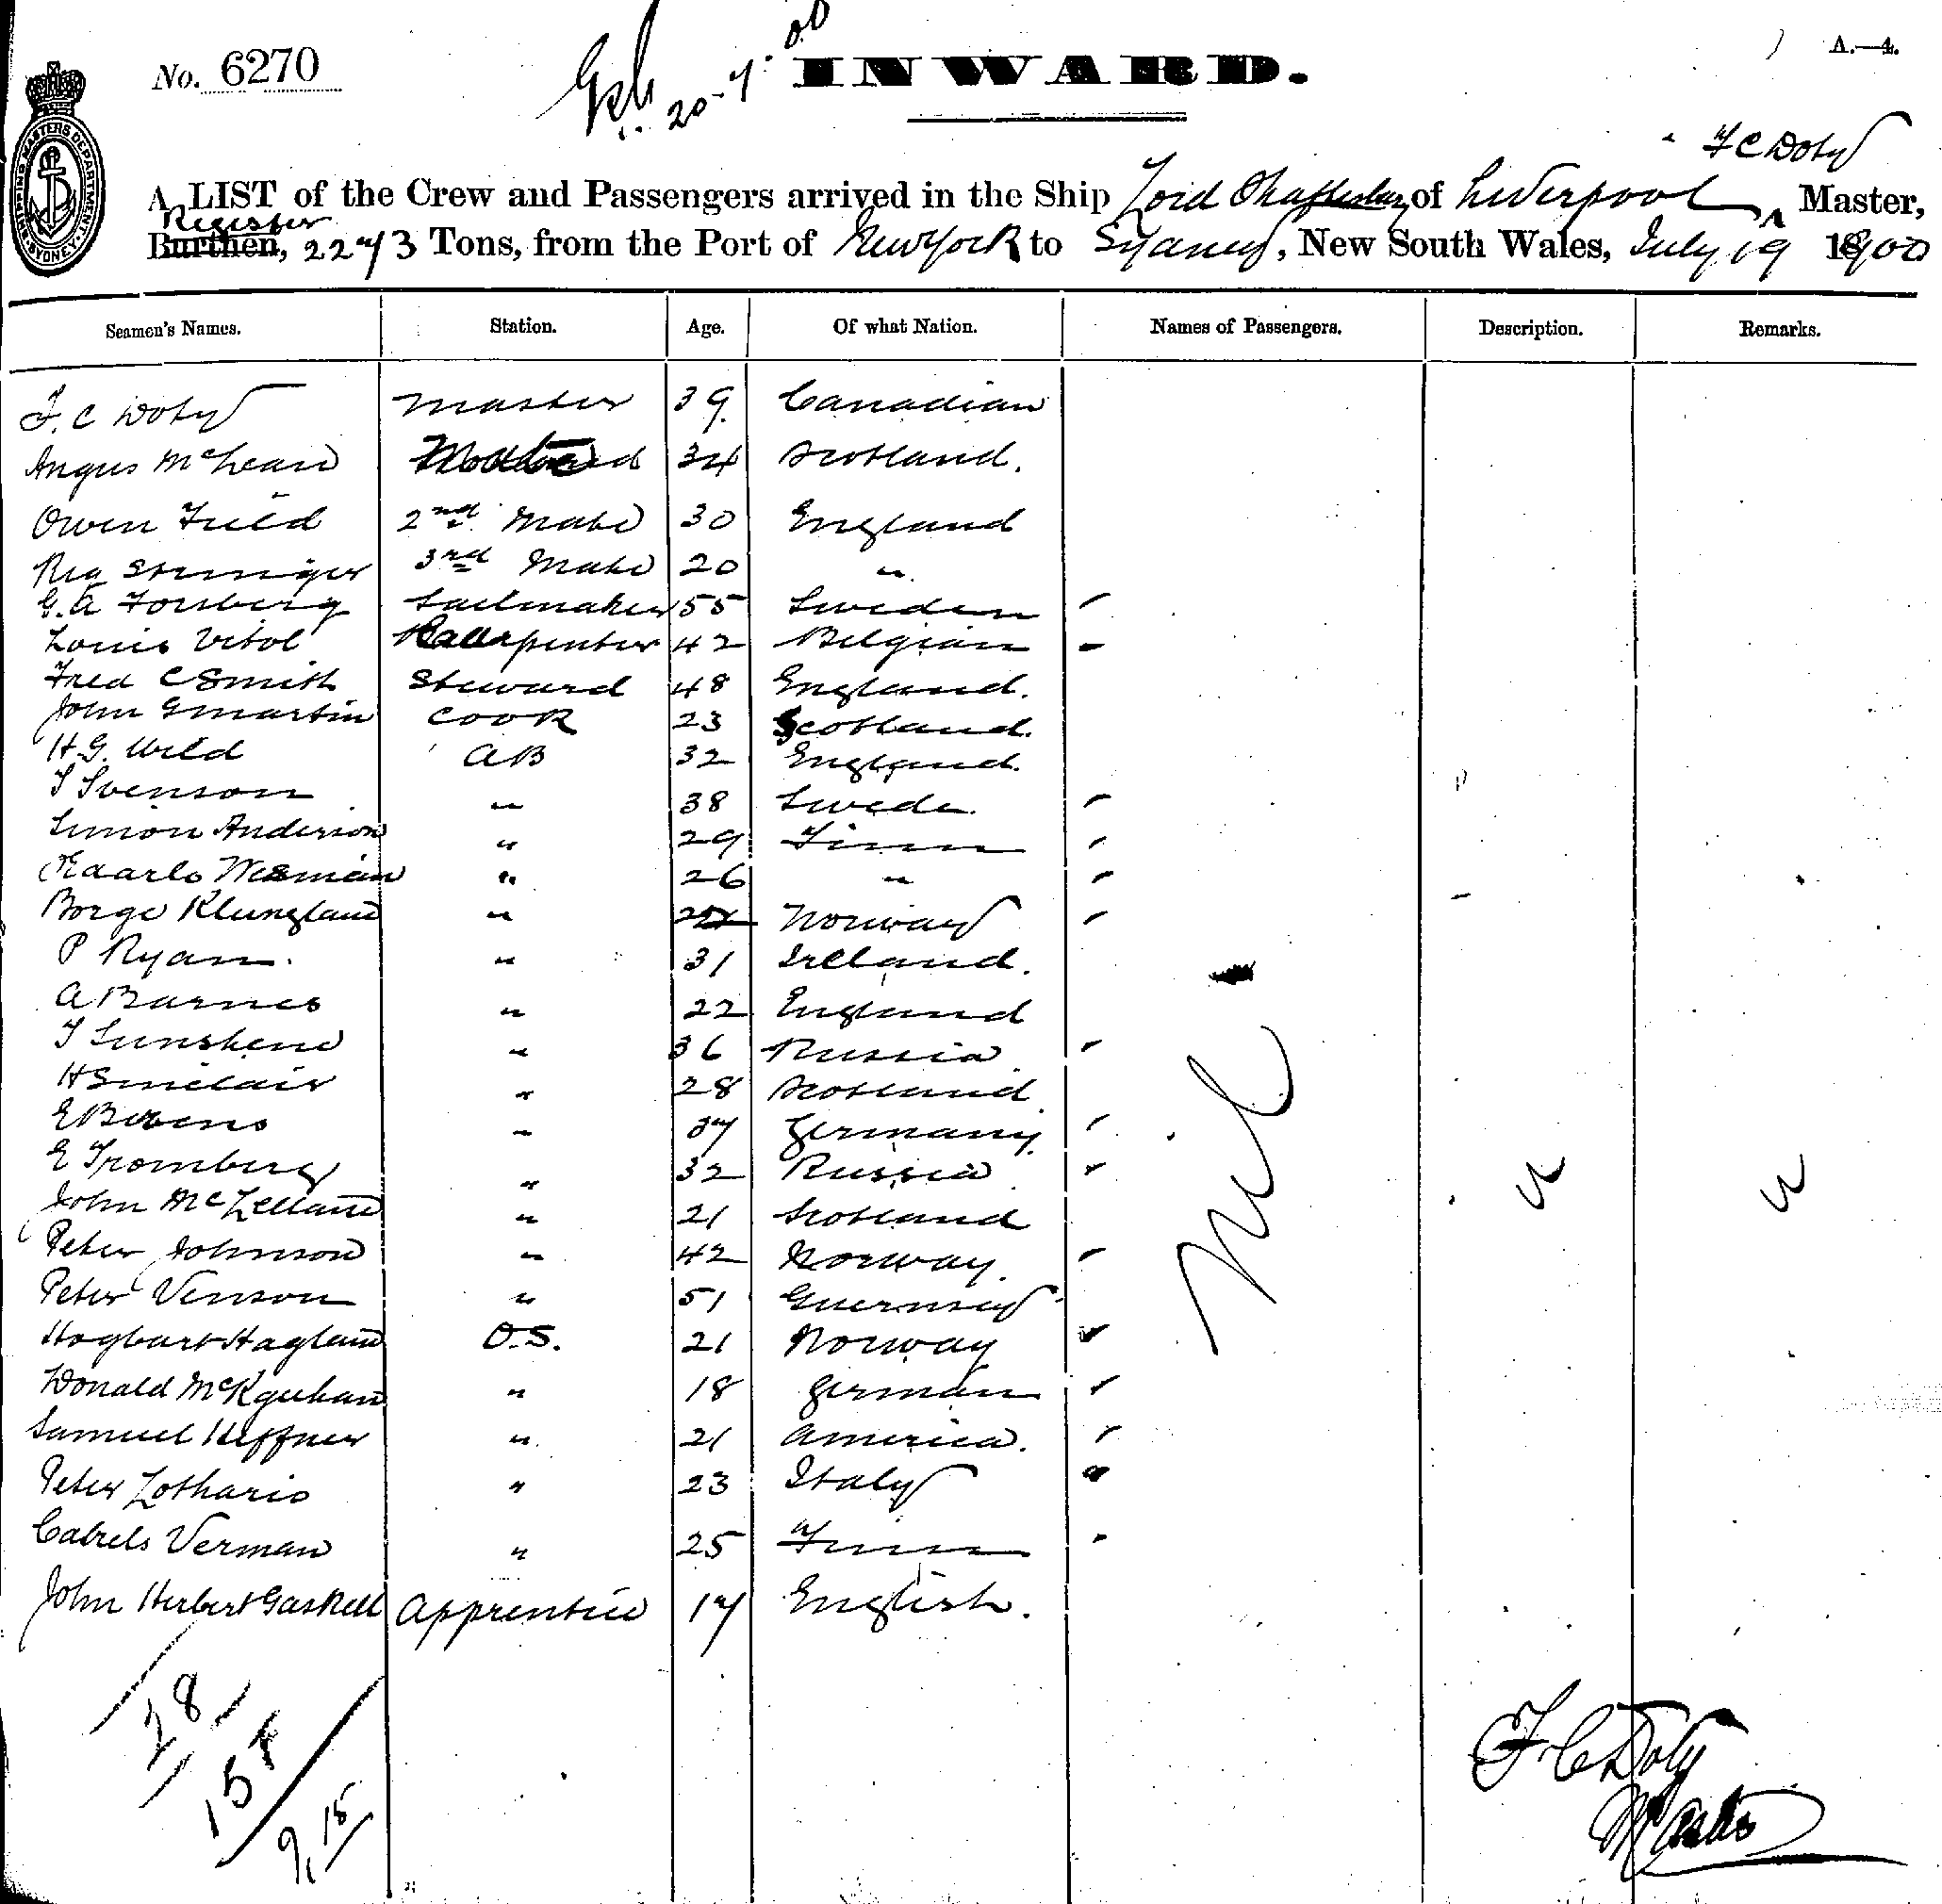 No. 6270
20-7-00
INWARD.
A.—4.
SHIPPING MASTERS DEPARTMENT SYDNEY
F C Doty
A LIST of the Crew and Passengers arrived in the Ship Lord Shaftesbury of Liverpool, Master,
Register
Burthen, 2273 Tons, from the Port of New York to Sydney, New South Wales, July 19 1900
Seamen's Names. Station. Age. Of what Nation. Names of Passengers. Description. Remarks.
F. C Doty Master 39. Canadian
Angus McLean 34 Scotland.
Owen Field 2nd Mate 30 England
Reg 3rd Mate 20 "
G. A Forsberg Sailmaker 55 Sweden
Louis Vitol Carpenter 42 Belgian
Fred C Smith Steward 48 England.
John G Martin Cook 23 Scotland.
H. G. Wild AB 32 England.
S Svenson " 38 Swede.
Simon Anderson " 29 Finn
Kaarlo " 26 "
Borge Klungland " Norway
P Ryan. " 31 Ireland.
A Barnes " 22 England
" 36 Russia
H Sinclair " 28 Scotland
E " 37 Germany.
E Tromberg " 32 Russia
John McLelland " 21 Scotland
Peter Johnson " 42 Norway.
Peter Venson " 51 Guernsey
Hogbart Hagland O.S. 21 Norway
Donald " 18 German
Samuel Heffner " 21 America.
Peter Lothario " 23 Italy
Verman " 25 Finn
John Herbert Gaskell Apprentice 17 English.
Nil " "
28
15
9.15
F. C Doty
Master